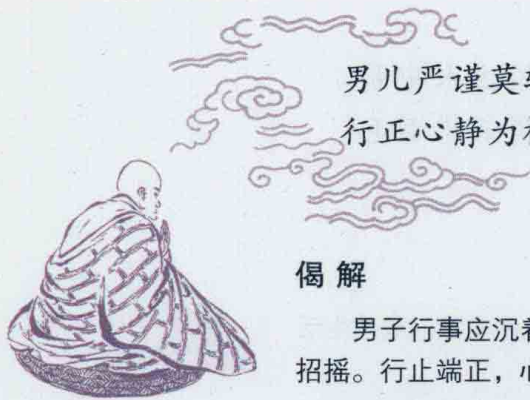 男儿严谨莫
行正心静为
偈解
男子行事应沉着
招摇。行止端正，